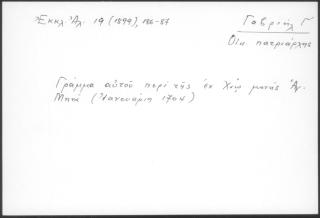 Ἐκκλ. Ἀλ. 19 (1899), 186-87
Γαβριὴλ Γ΄
Οἰκ. πατριάρχης
Γράμμα αὐτοῦ περὶ τῆς ἐν Χίῳ μονῆς Ἁγ.
Μηνᾶ (Ἰανουάριος 1704)